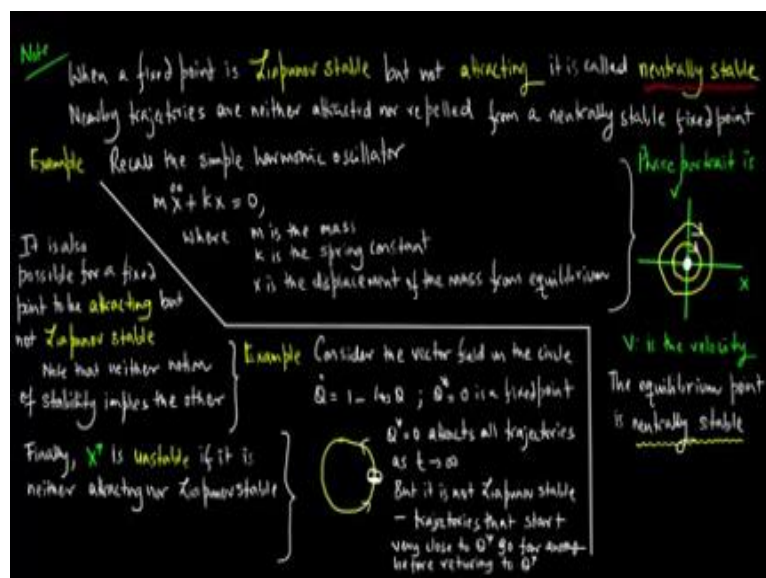 Note
When a fixed point is Liapunov stable but not attracting it is called neutrally stable
Nearby trajectories are neither attracted nor repelled from a neutrally stable fixed point
Example Recall the simple harmonic oscillator
mẍ + kx = 0,
where m is the mass
k is the spring constant
x is the displacement of the mass from equilibrium
Phase portrait is
V
X
V: is the velocity
The equilibrium point
is neutrally stable
It is also
possible for a fixed
point to be attracting but
not Liapunov stable
Note that neither notion
of stability implies the other
Example Consider the vector field on the circle
θ̇ = 1 - cos θ ; θ* = 0 is a fixed point
θ* = 0 attracts all trajectories
as t → ∞
But it is not Liapunov stable
- trajectories that start
very close to θ* go far away
before returning to θ*
Finally, X* is unstable if it is
neither attracting nor Liapunov stable